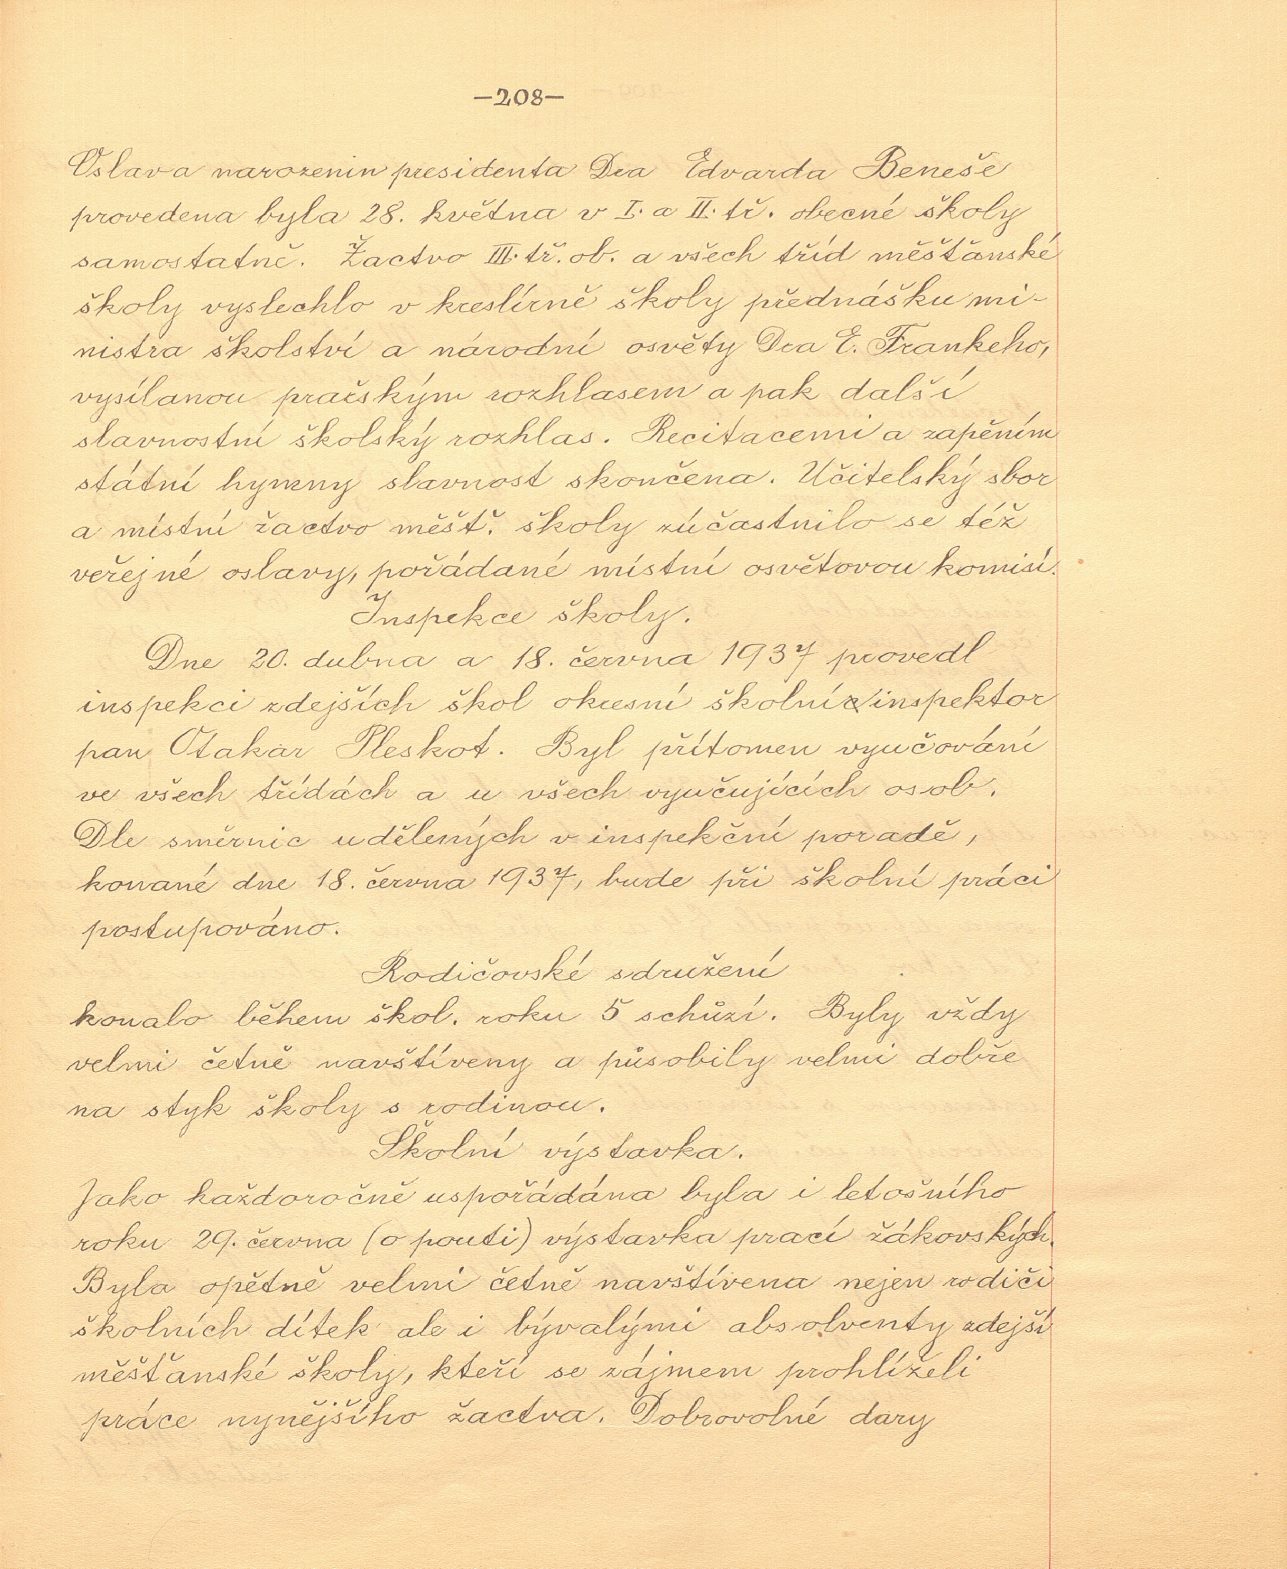 –208–
Oslava narozenin presidenta Dra Edvarda Beneše
provedena byla 28. května v I. a II. tř. obecné školy
samostatně. Žactvo III. tř. ob. a všech tříd měšťanské
školy vyslechlo v kreslírně školy přednášku mi-
nistra školství a národní osvěty Dra E. Frankeho,
vysílanou pražským rozhlasem a pak další
slavnostní školský rozhlas. Recitacemi a zapěním
státní hymny slavnost skončena. Učitelský sbor
a místní žactvo měšť. školy zúčastnilo se též
veřejné oslavy, pořádané místní osvětovou komisí.
Inspekce školy.
Dne 20. dubna a 18. června 1937 provedl
inspekci zdejších škol okresní školní inspektor
pan Otakar Pleskot. Byl přítomen vyučování
ve všech třídách a u všech vyučujících osob.
Dle směrnic udělených v inspekční poradě,
konané dne 18. června 1937, bude při školní práci
postupováno.
Rodičovské sdružení
konalo během škol. roku 5 schůzí. Byly vždy
velmi četně navštíveny a působily velmi dobře
na styk školy s rodinou.
Školní výstavka.
Jako každoročně uspořádána byla i letošního
roku 29. června (o pouti) výstavka prací žákovských.
Byla opětně velmi četně navštívena nejen rodiči
školních dítek ale i bývalými absolventy zdejší
měšťanské školy, kteří se zájmem prohlíželi
práce nynějšího žactva. Dobrovolné dary